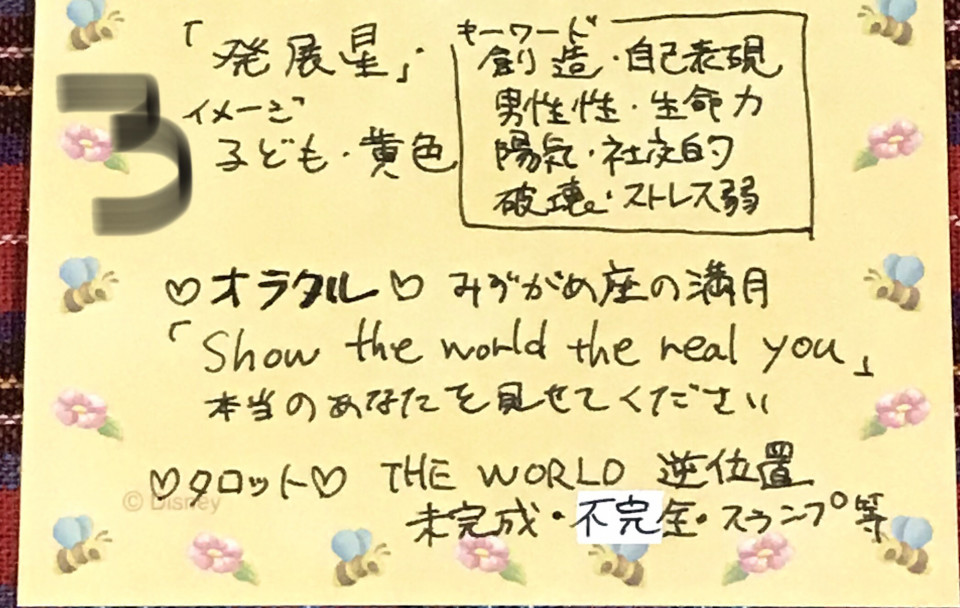 「発展星」
3
イメージ
子ども・黄色
キーワード
創造・自己表現
男性性・生命力
陽気・社交的
破壊・ストレス弱
♡オラクル♡ みずがめ座の満月
「Show the world the real you」
本当のあなたを見せてください
♡タロット♡ THE WORLD 逆位置
© Disney
未完成・不完全・スランプ等